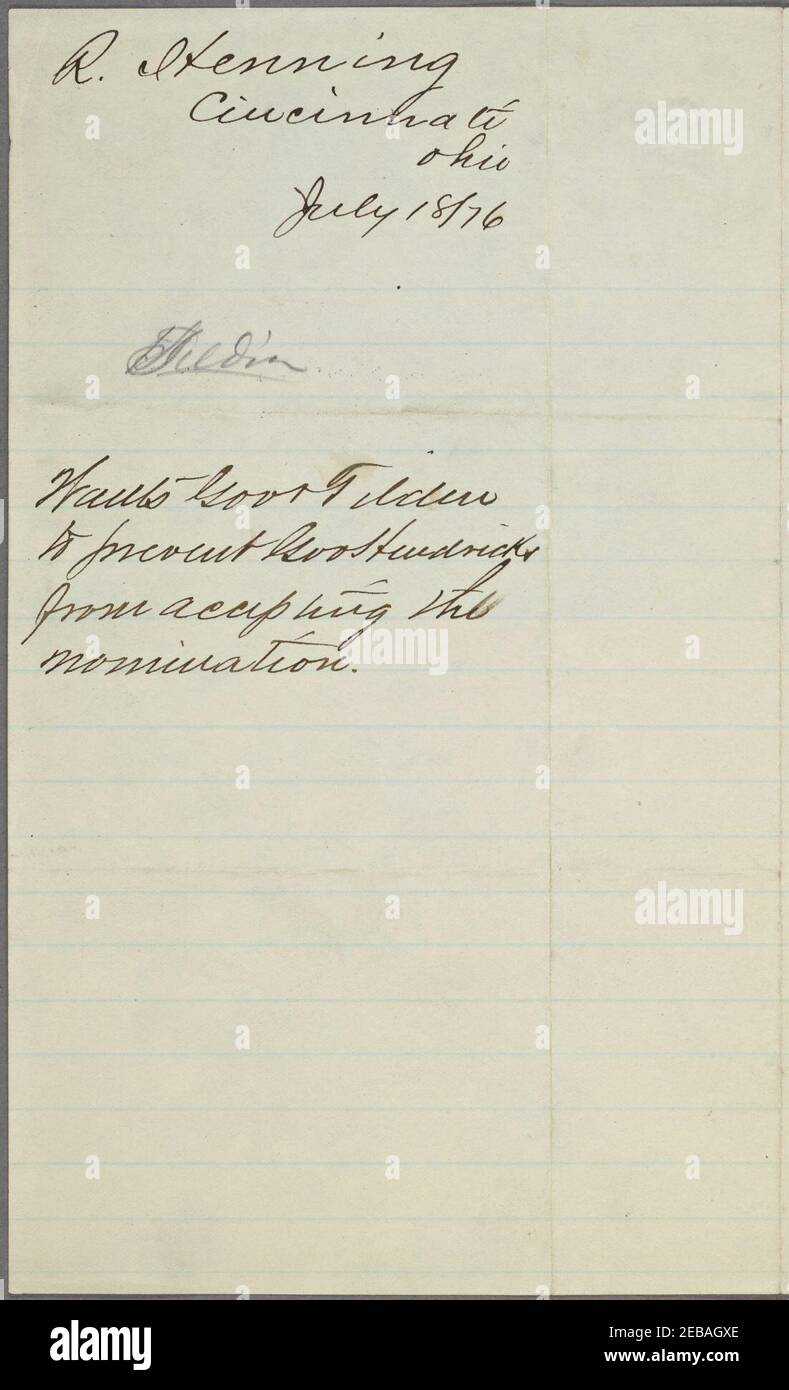 R. Henning
Cincinnati
Ohio
July 18/76
Tilden
Wants Govr Tilden
to prevent Gov Hendricks
from accepting the
nomination.
alamy
alamy
alamy
alamy
Image ID: 2EBAGXE
www.alamy.com